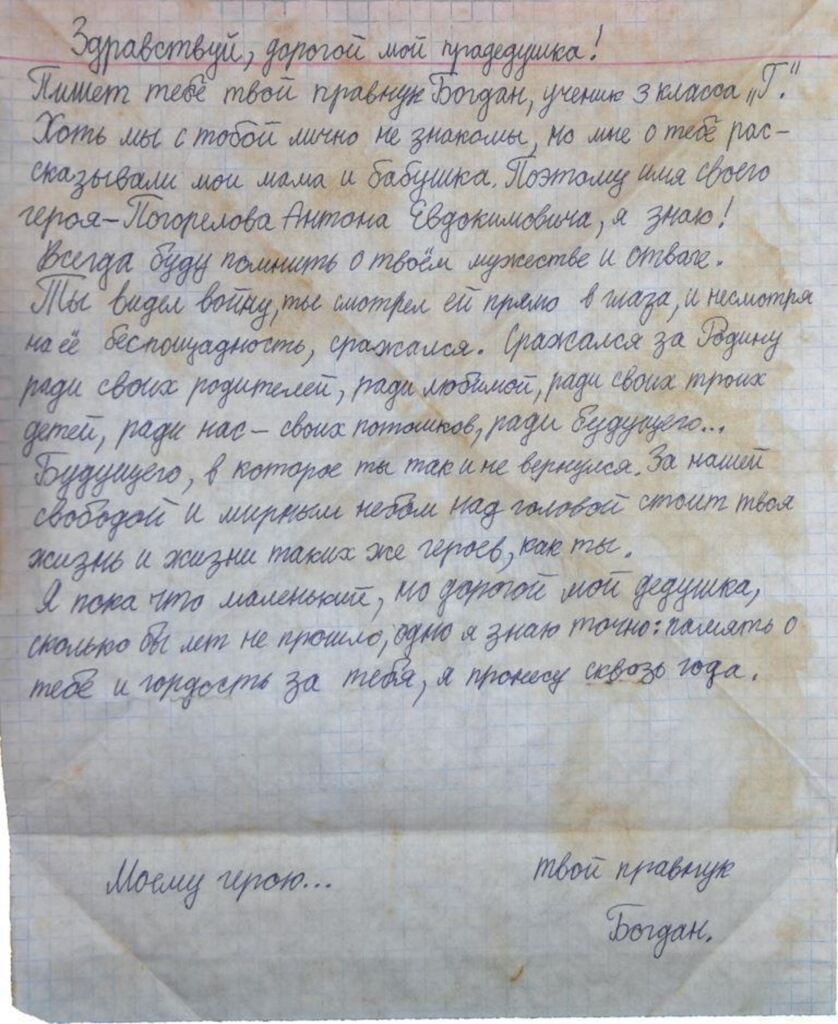 Здравствуй, дорогой мой прадедушка!
Пишет тебе твой правнук Богдан, ученик 3 класса „Г."
Хоть мы с тобой лично не знакомы, но мне о тебе рас-
сказывали мои мама и бабушка. Поэтому имя своего
героя – Погорелова Антона Евдокимовича, я знаю!
Всегда буду помнить о твоём мужестве и отваге.
Ты видел войну, ты смотрел ей прямо в глаза, и несмотря
на её беспощадность, сражался. Сражался за Родину
ради своих родителей, ради любимой, ради своих троих
детей, ради нас – своих потомков, ради будущего...
Будущего, в которое ты так и не вернулся. За нашей
свободой и мирным небом над головой стоит твоя
жизнь и жизни таких же героев, как ты.
Я пока что маленький, но дорогой мой дедушка,
сколько бы лет не прошло, одно я знаю точно: память о
тебе и гордость за тебя, я пронесу сквозь года.
Моему герою... твой правнук
Богдан.